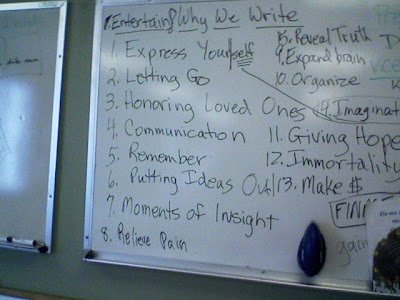 Entertain? Why We Write
1. Express Yourself
2. Letting Go
3. Honoring Loved Ones
4. Communication
5. Remember
6. Putting Ideas Out
7. Moments of Insight
8. Relieve Pain
15. Reveal Truth
9. Expand brain
10. Organize
14. Imaginat
11. Giving Hope
12. Immortality
13. Make $
FINA
gain